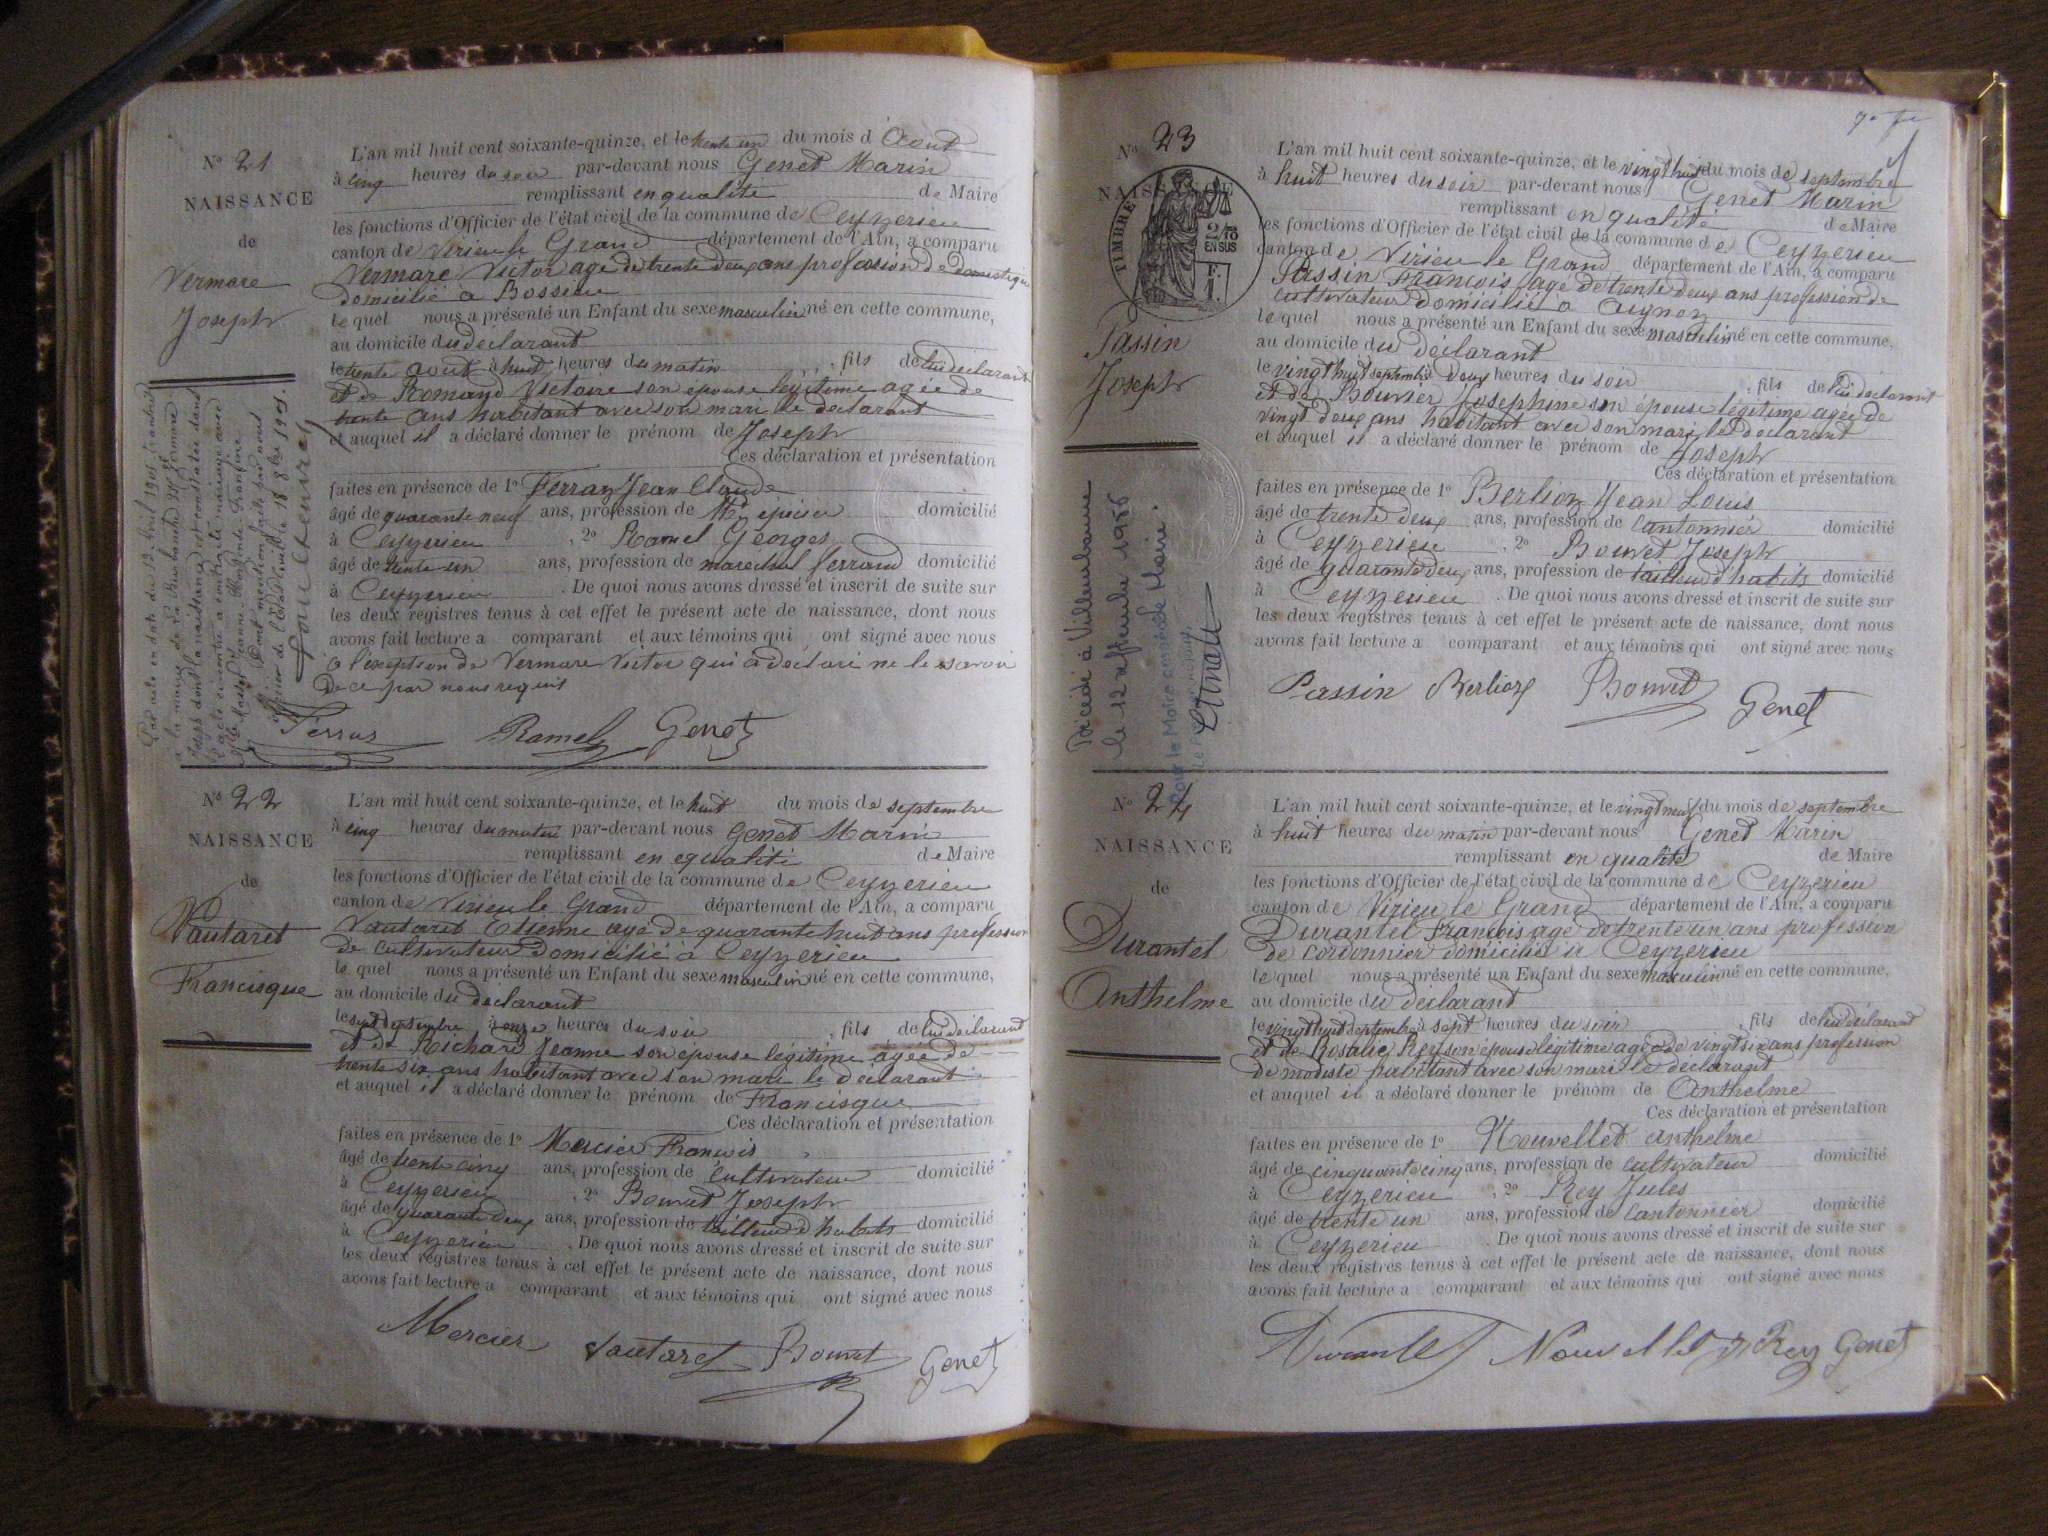 No 21
NAISSANCE
de
Vermare
Joseph
L'an mil huit cent soixante-quinze, et le trente un du mois d'Aout
à cinq heures du soir par-devant nous Genet Marin
remplissant en qualité de Maire
les fonctions d'Officier de l'état civil de la commune de Ceyzerieu
canton de Virieu le Grand département de l'Ain, a comparu
Vermare Victor agé de trente deux ans profession de domestique
domicilié à Bosseau
le quel nous a présenté un Enfant du sexe masculin né en cette commune,
au domicile du déclarant
le trente aout à huit heures du matin, fils de lui déclarant
et de Romand Victoire son épouse légitime agée de
trente ans habitant avec son mari le déclarant
et auquel il a déclaré donner le prénom de Joseph
Ces déclaration et présentation
faites en présence de 1o Ferraz Jean Claude
âgé de quarante neuf ans, profession de Md épicier domicilié
à Ceyzerieu, 2o Ramel Georges
âgé de trente un ans, profession de marechal ferrand domicilié
à Ceyzerieu. De quoi nous avons dressé et inscrit de suite sur
les deux registres tenus à cet effet le présent acte de naissance, dont nous
avons fait lecture a comparant et aux témoins qui ont signé avec nous
à l'exception de Vermare Victor qui a déclaré ne le savoir
de ce par nous requis
Ramel Genet
No 22
NAISSANCE
de
Vautaret
Francisque
L'an mil huit cent soixante-quinze, et le huit du mois de septembre
à cinq heures du matin par-devant nous Genet Marin
remplissant en qualité de Maire
les fonctions d'Officier de l'état civil de la commune de Ceyzerieu
canton de Virieu le Grand département de l'Ain, a comparu
Vautaret Etienne agé de quarante huit ans profession
de cultivateur domicilié à Ceyzerieu
le quel nous a présenté un Enfant du sexe masculin né en cette commune,
au domicile du déclarant
le sept septembre à onze heures du soir, fils de lui déclarant
et de Richard Jeanne son épouse légitime agée de
trente six ans habitant avec son mari le déclarant
et auquel il a déclaré donner le prénom de Francisque
Ces déclaration et présentation
faites en présence de 1o Mercier François
âgé de trente cinq ans, profession de cultivateur domicilié
à Ceyzerieu, 2o Bouvet Joseph
âgé de quarante deux ans, profession de tailleur d'habits domicilié
à Ceyzerieu. De quoi nous avons dressé et inscrit de suite sur
les deux registres tenus à cet effet le présent acte de naissance, dont nous
avons fait lecture a comparant et aux témoins qui ont signé avec nous
Mercier Vautaret Bouvet Genet
No 23
NAISSANCE
TIMBRE
2/10
EN SUS
F.
1.
Passin
Joseph
Décédé à Villeurbanne
le 12 septembre 1956
Pour le Maire empêché
L'an mil huit cent soixante-quinze, et le vingt huit du mois de septembre
à huit heures du soir par-devant nous Genet Marin
remplissant en qualité de Maire
les fonctions d'Officier de l'état civil de la commune de Ceyzerieu
canton de Virieu le Grand département de l'Ain, a comparu
Passin François agé de trente deux ans profession de
cultivateur domicilié à Aignoz
le quel nous a présenté un Enfant du sexe masculin né en cette commune,
au domicile du déclarant
le vingt huit septembre à deux heures du soir, fils de lui déclarant
et de Bouvier Josephine son épouse légitime agée de
vingt deux ans habitant avec son mari le déclarant
et auquel il a déclaré donner le prénom de Joseph
Ces déclaration et présentation
faites en présence de 1o Berlioz Jean Louis
âgé de trente deux ans, profession de cantonnier domicilié
à Ceyzerieu, 2o Bouvet Joseph
âgé de quarante deux ans, profession de tailleur d'habits domicilié
à Ceyzerieu. De quoi nous avons dressé et inscrit de suite sur
les deux registres tenus à cet effet le présent acte de naissance, dont nous
avons fait lecture a comparant et aux témoins qui ont signé avec nous
Passin Berlioz Bouvet Genet
No 24
NAISSANCE
de
Durantel
Anthelme
L'an mil huit cent soixante-quinze, et le vingt neuf du mois de septembre
à huit heures du matin par-devant nous Genet Marin
remplissant en qualité de Maire
les fonctions d'Officier de l'état civil de la commune de Ceyzerieu
canton de Virieu le Grand département de l'Ain, a comparu
Durantel François agé de trente un ans profession
de cordonnier domicilié à Ceyzerieu
le quel nous a présenté un Enfant du sexe masculin né en cette commune,
au domicile du déclarant
le vingt huit septembre à sept heures du soir, fils de lui déclarant
et de Rosalie Rey son épouse légitime agée de vingt six ans profession
de modiste habitant avec son mari le déclarant
et auquel il a déclaré donner le prénom de Anthelme
Ces déclaration et présentation
faites en présence de 1o Nouvellet Anthelme
âgé de cinquante cinq ans, profession de cultivateur domicilié
à Ceyzerieu, 2o Rey Jules
âgé de trente un ans, profession de cantonnier domicilié
à Ceyzerieu. De quoi nous avons dressé et inscrit de suite sur
les deux registres tenus à cet effet le présent acte de naissance, dont nous
avons fait lecture a comparant et aux témoins qui ont signé avec nous
Durantel Nouvellet J Rey Genet